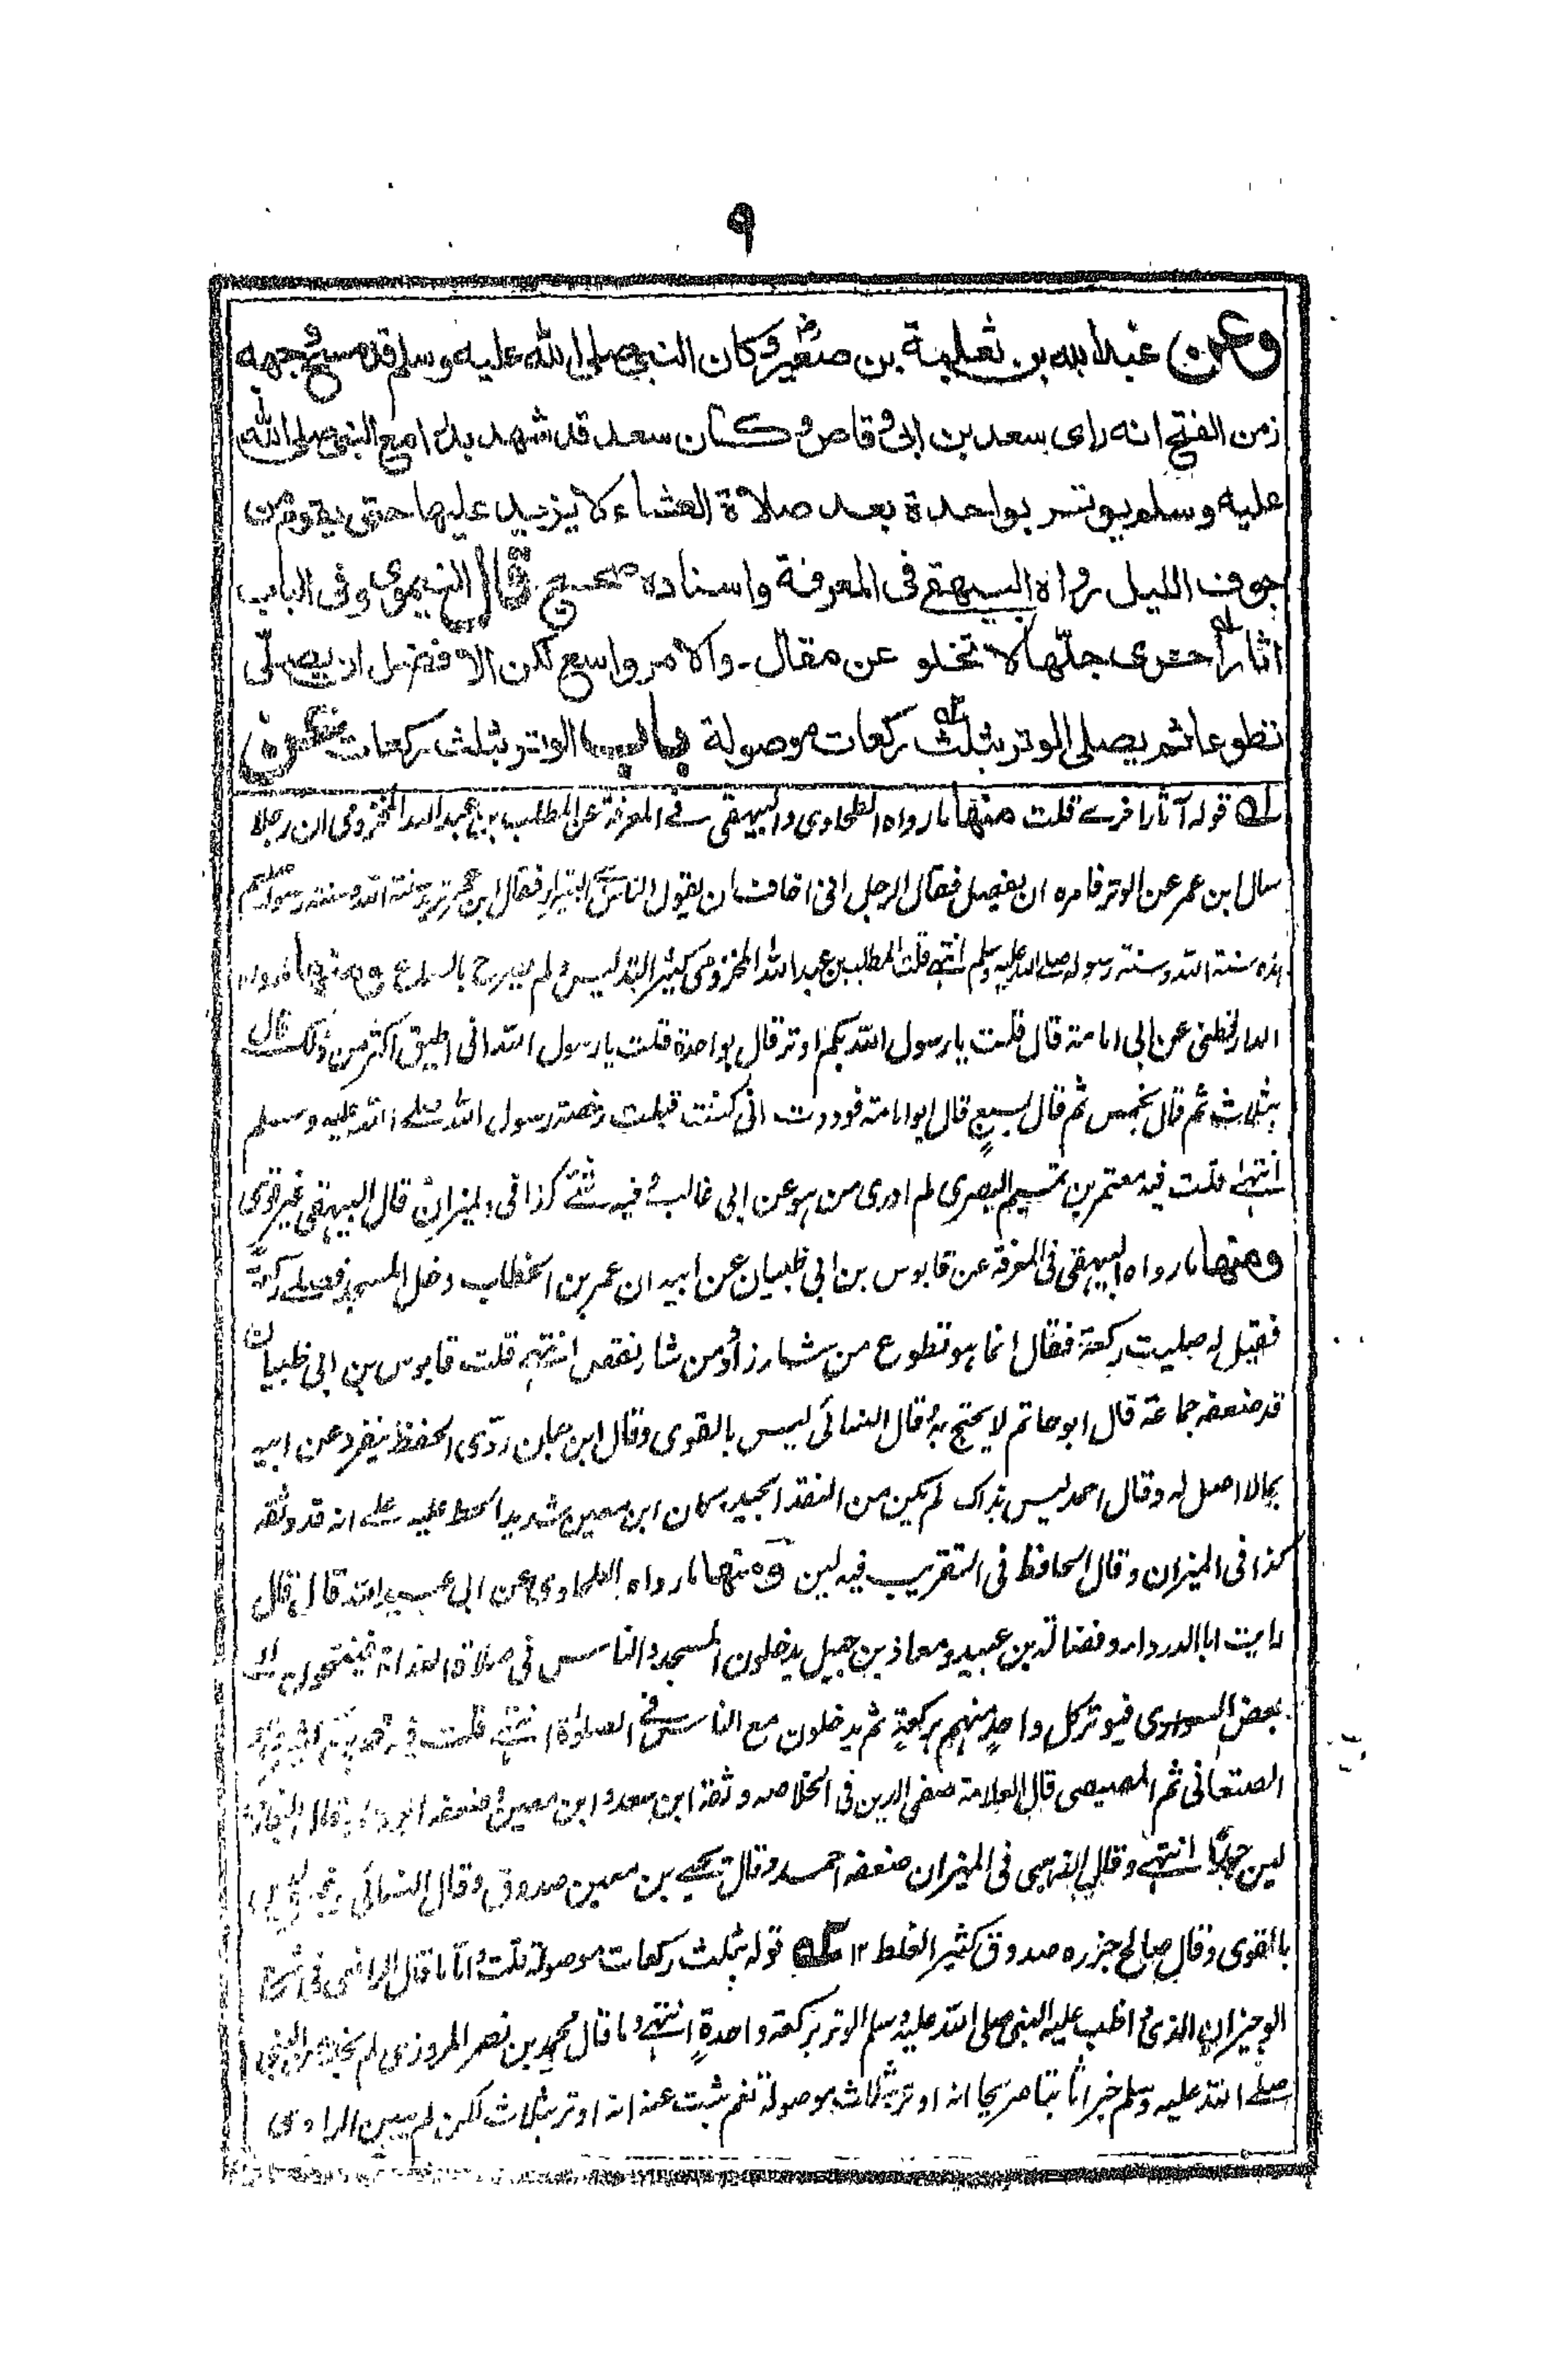 ٩
وعن عبد الله بن ثعلبة بن صغير رض وكان النبي صلى الله عليه وسلم قد مسح وجهه
زمن الفتح انه رای سعد بن ابی وقاص وكان سعد قد شهد بدرا مع النبی صلی الله
عليه وسلم يوتر بواحدة بعد صلاة العشاء لا يزيد عليها حتی يقوم من
جوف الليل رواه البيهقی فی المعرفة واسناده صحيح قال النيموی وفی الباب
اثارا خری جلها لا تخلو عن مقال ۔ والامر واسع لكن الافضل ان يصلی
تطوعا ثم يصلی الوتر بثلث ركعات موصولة باب الوتر بثلث ركعات عن
له قوله آثارا خری قلت منها ما رواه الطحاوی والبيهقی فی المعرفة عن المطلب بن عبد الله المخزومی ان رجلا
سال ابن عمر عن الوتر فامره ان يفصل فقال الرجل انی اخاف ان يقول الناس البتيراء فقال ابن عمر تريد سنة الله وسنة رسوله صلعم
هذه سنة الله وسنة رسوله صلی الله عليه وسلم انتهی قلت المطلب بن عبد الله المخزومی كثير التدليس ولم يصرح بالسماع ومنها ما رواه
الدارقطنی عن ابی امامة قال قلت يا رسول الله بكم اوتر قال بواحدة قلت يا رسول الله انی اطيق اكثر من ذلك قال
بثلاث ثم قال بخمس ثم قال بسبع قال ابو امامة فوددت انی كنت قبلت رخصة رسول الله صلی الله عليه وسلم
انتهی قلت فيه معتمر بن تميم البصری لم ادری من هو عن ابی غالب وفيه شئ كذا فی الميزان قال البيهقی غير قوی
ومنها ما رواه البيهقی فی المعرفة عن قابوس بن ابی ظبيان عن ابيه ان عمر بن الخطاب دخل المسجد فصلی ركعة
فقيل له صليت ركعة فقال انما هو تطوع من شاء زاد ومن شاء نقص انتهی قلت قابوس بن ابی ظبيان
قد ضعفه جماعة قال ابو حاتم لا يحتج به وقال النسائی ليس بالقوی وقال ابن حبان ردی الحفظ ينفرد عن ابيه
بما لا اصل له وقال احمد ليس بذاك لم يكن من النقد الجيد وكان ابن معين شديد الحط عليه علی انه قد وثقه
كذا فی الميزان وقال الحافظ فی التقريب فيه لين ومنها ما رواه الطحاوی عن ابی عبيد الله قال قال
رايت ابا الدرداء وفضالة بن عبيد ومعاذ بن جبل يدخلون المسجد والناس فی صلاة الغداة فيتنحون الی
بعض السواری فيوتر كل واحد منهم بركعة ثم يدخلون مع الناس فی الصلوة انتهی قلت فيه
الصنعانی ثم المصيصی قال العلامة صفی الدين فی الخلاصه وثقه ابن سعد وابن معين وضعفه احمد وقال البخاری
لين جدا انتهی وقال الذهبی فی الميزان ضعفه احمد وقال يحيی بن معين صدوق وقال النسائی وغيره ليس
بالقوی وقال صالح جزره صدوق كثير الغلط ۱۲ ٢ه قوله بثلث ركعات موصولة قلت واما ما قال الرافعی فی شرح
الوجيز ان الذی واظب عليه النبی صلی الله عليه وسلم الوتر بركعة واحدة انتهی وما قال محمد بن نصر المروزی لم نجد عن النبی
صلی الله عليه وسلم خبرا ثابتا صريحا انه اوتر بثلاث موصولة نعم ثبت عنه انه اوتر بثلاث لكن لم يبين الراوی